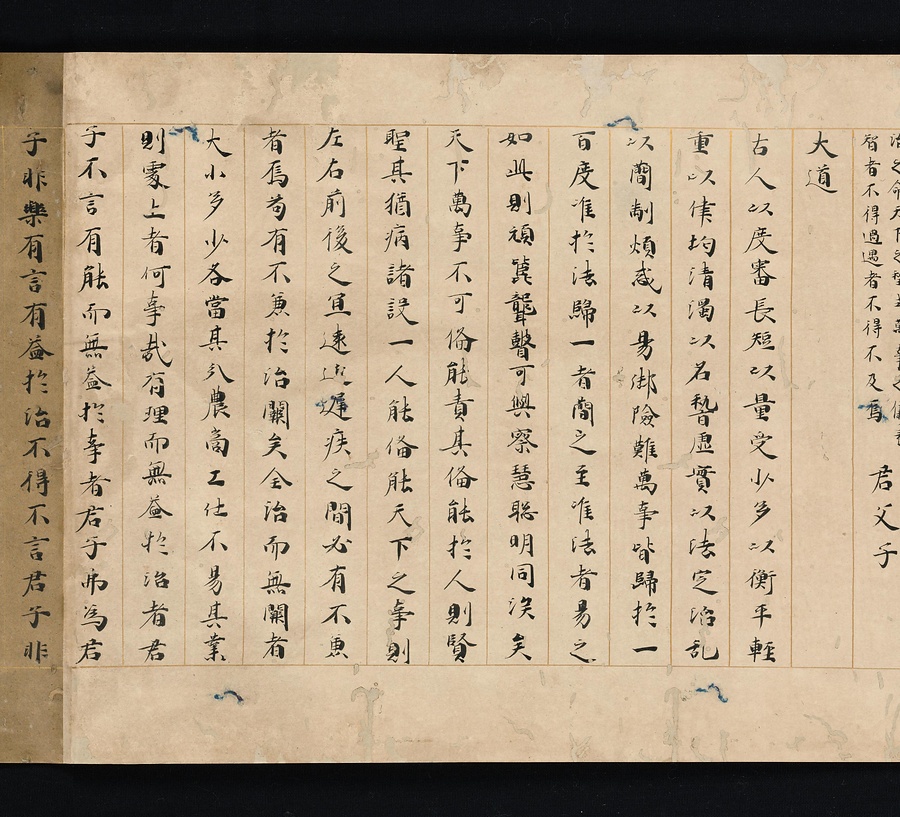 智者不得過遇者不得不及焉
君父子
大道
古人以度審長短以量受少多以衡平輕
重以律均清濁以名稽虛實以法定治亂
以簡制煩惑以易御險難萬事皆歸於一
百度准於法歸一者簡之至准法者易之
如此則頑嚚聾瞽可與察慧聡明同矣
天下萬事不可俻能責其俻能於人則賢
聖其猶病諸設一人能俻能天下之事則
左右前後之宜遠近遲疾之間必有不兼
者焉苟有不兼於治闕矣全治而無闕者
大小多少各當其分農商工仕不易其業
則處上者何事哉有理而無益於治者君
子不言有能而無益於事者君子弗為君
子非樂有言有益於治不得不言君子非